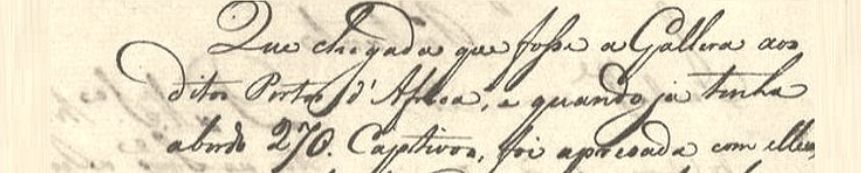 Que chegada que fosse a Gallera aos
ditos Portos d'Africa, e quando já tinha
abordo 270. Captivos, foi apresada com elles,